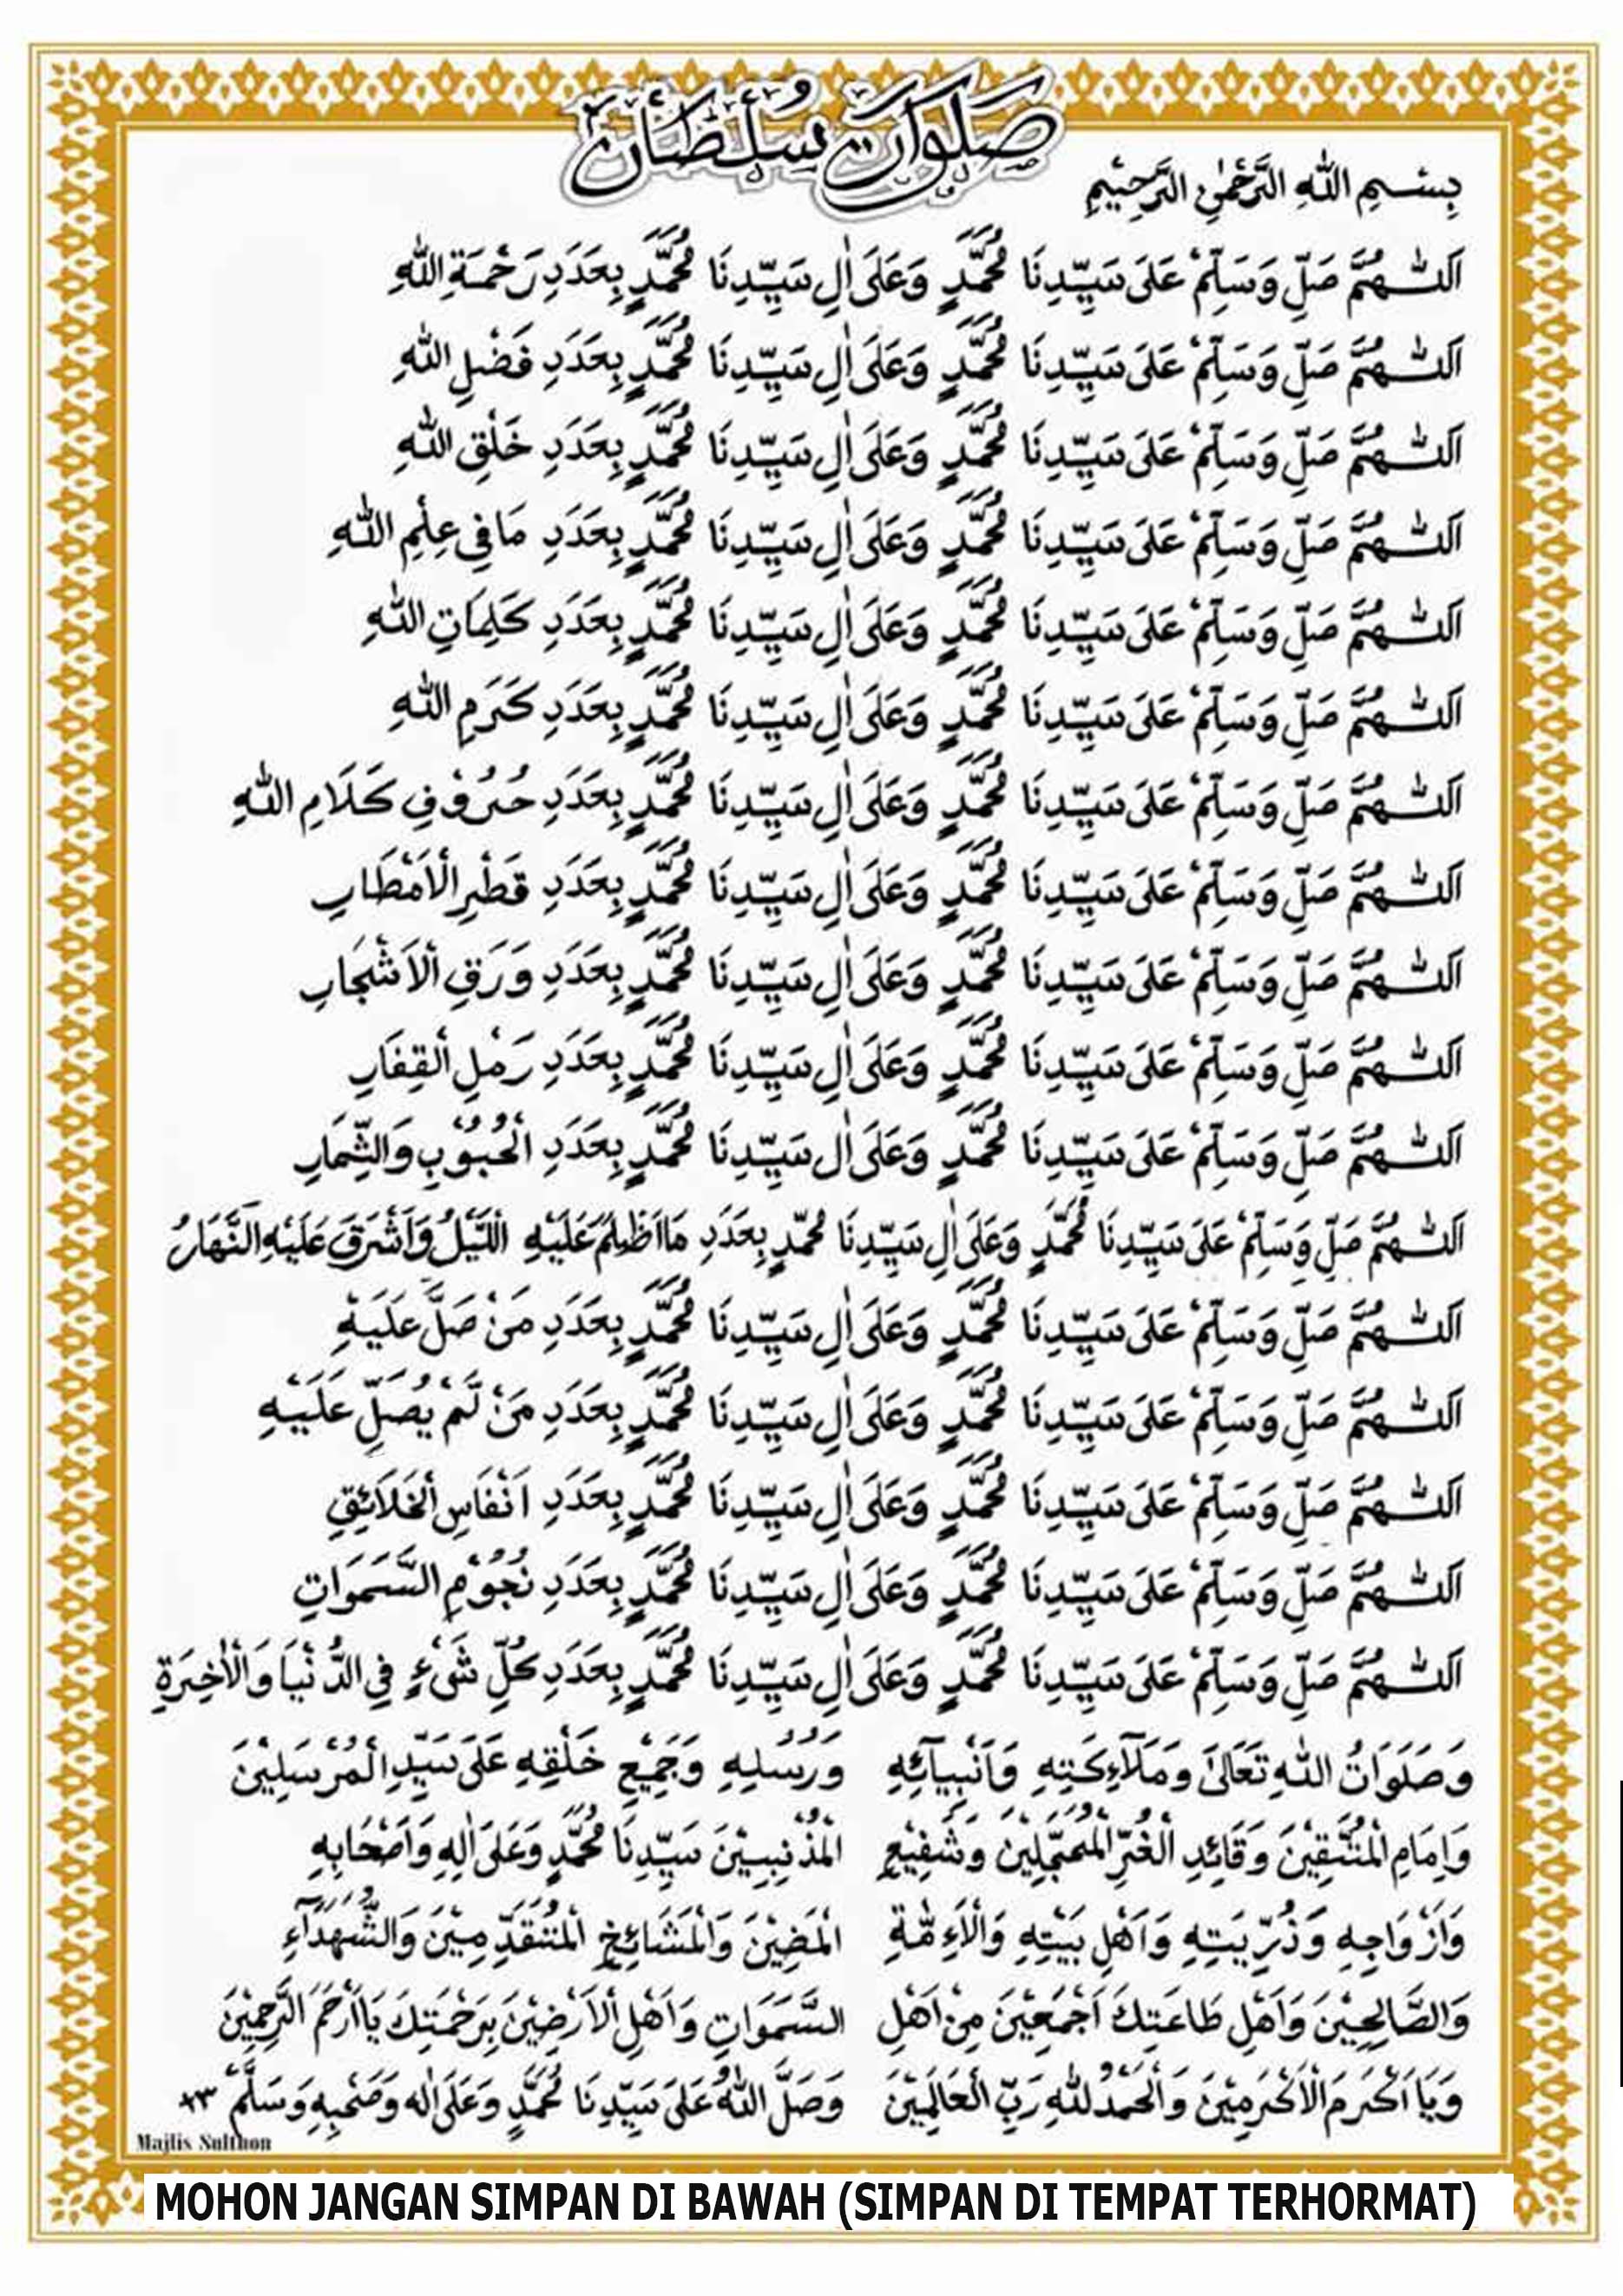 صَلَوَاتْ سُلْطَانْ
بِسْمِ اللهِ الرَّحْمٰنِ الرَّحِيْمِ
اَللّٰهُمَّ صَلِّ وَسَلِّمْ عَلَى سَيِّدِنَا مُحَمَّدٍ وَعَلَى اٰلِ سَيِّدِنَا مُحَمَّدٍ بِعَدَدِ رَحْمَةِ اللهِ
اَللّٰهُمَّ صَلِّ وَسَلِّمْ عَلَى سَيِّدِنَا مُحَمَّدٍ وَعَلَى اٰلِ سَيِّدِنَا مُحَمَّدٍ بِعَدَدِ فَضْلِ اللهِ
اَللّٰهُمَّ صَلِّ وَسَلِّمْ عَلَى سَيِّدِنَا مُحَمَّدٍ وَعَلَى اٰلِ سَيِّدِنَا مُحَمَّدٍ بِعَدَدِ خَلْقِ اللهِ
اَللّٰهُمَّ صَلِّ وَسَلِّمْ عَلَى سَيِّدِنَا مُحَمَّدٍ وَعَلَى اٰلِ سَيِّدِنَا مُحَمَّدٍ بِعَدَدِ مَا فِي عِلْمِ اللهِ
اَللّٰهُمَّ صَلِّ وَسَلِّمْ عَلَى سَيِّدِنَا مُحَمَّدٍ وَعَلَى اٰلِ سَيِّدِنَا مُحَمَّدٍ بِعَدَدِ كَلِمَاتِ اللهِ
اَللّٰهُمَّ صَلِّ وَسَلِّمْ عَلَى سَيِّدِنَا مُحَمَّدٍ وَعَلَى اٰلِ سَيِّدِنَا مُحَمَّدٍ بِعَدَدِ كَرَمِ اللهِ
اَللّٰهُمَّ صَلِّ وَسَلِّمْ عَلَى سَيِّدِنَا مُحَمَّدٍ وَعَلَى اٰلِ سَيِّدِنَا مُحَمَّدٍ بِعَدَدِ حُرُوْفِ كَلَامِ اللهِ
اَللّٰهُمَّ صَلِّ وَسَلِّمْ عَلَى سَيِّدِنَا مُحَمَّدٍ وَعَلَى اٰلِ سَيِّدِنَا مُحَمَّدٍ بِعَدَدِ قَطْرِ الْاَمْطَارِ
اَللّٰهُمَّ صَلِّ وَسَلِّمْ عَلَى سَيِّدِنَا مُحَمَّدٍ وَعَلَى اٰلِ سَيِّدِنَا مُحَمَّدٍ بِعَدَدِ وَرَقِ الْاَشْجَارِ
اَللّٰهُمَّ صَلِّ وَسَلِّمْ عَلَى سَيِّدِنَا مُحَمَّدٍ وَعَلَى اٰلِ سَيِّدِنَا مُحَمَّدٍ بِعَدَدِ رَمْلِ الْقِفَارِ
اَللّٰهُمَّ صَلِّ وَسَلِّمْ عَلَى سَيِّدِنَا مُحَمَّدٍ وَعَلَى اٰلِ سَيِّدِنَا مُحَمَّدٍ بِعَدَدِ الْحُبُوْبِ وَالثِّمَارِ
اَللّٰهُمَّ صَلِّ وَسَلِّمْ عَلَى سَيِّدِنَا مُحَمَّدٍ وَعَلَى اٰلِ سَيِّدِنَا مُحَمَّدٍ بِعَدَدِ مَا اَظْلَمَ عَلَيْهِ اللَّيْلُ وَاَشْرَقَ عَلَيْهِ النَّهَارُ
اَللّٰهُمَّ صَلِّ وَسَلِّمْ عَلَى سَيِّدِنَا مُحَمَّدٍ وَعَلَى اٰلِ سَيِّدِنَا مُحَمَّدٍ بِعَدَدِ مَنْ صَلَّ عَلَيْهِ
اَللّٰهُمَّ صَلِّ وَسَلِّمْ عَلَى سَيِّدِنَا مُحَمَّدٍ وَعَلَى اٰلِ سَيِّدِنَا مُحَمَّدٍ بِعَدَدِ مَنْ لَّمْ يُصَلِّ عَلَيْهِ
اَللّٰهُمَّ صَلِّ وَسَلِّمْ عَلَى سَيِّدِنَا مُحَمَّدٍ وَعَلَى اٰلِ سَيِّدِنَا مُحَمَّدٍ بِعَدَدِ اَنْفَاسِ الْخَلَائِقِ
اَللّٰهُمَّ صَلِّ وَسَلِّمْ عَلَى سَيِّدِنَا مُحَمَّدٍ وَعَلَى اٰلِ سَيِّدِنَا مُحَمَّدٍ بِعَدَدِ نُجُوْمِ السَّمَوَاتِ
اَللّٰهُمَّ صَلِّ وَسَلِّمْ عَلَى سَيِّدِنَا مُحَمَّدٍ وَعَلَى اٰلِ سَيِّدِنَا مُحَمَّدٍ بِعَدَدِ كُلِّ شَىْءٍ فِي الدُّنْيَا وَالْاٰخِرَةِ
وَصَلَوَاتُ اللهِ تَعَالَى وَمَلَآءِكَتِهِ وَاَنْبِيَآئِهِ وَرُسُلِهِ وَجَمِيْعِ خَلْقِهِ عَلَى سَيِّدِ الْمُرْسَلِيْنَ
وَاِمَامِ الْمُتَّقِيْنَ وَقَائِدِ الْغُرِّ الْمُحَجَّلِيْنَ وَشَفِيْعِ الْمُذْنِبِيْنَ سَيِّدِنَا مُحَمَّدٍ وَعَلَى اٰلِهِ وَاَصْحَابِهِ
وَاَزْوَاجِهِ وَذُرِّيَتِهِ وَاَهْلِ بَيْتِهِ وَالْاَءِمَّةِ الْمَضِيْنَ وَالْمَشَائِخِ الْمُتَقَدِّمِيْنَ وَالشُّهَدَآءِ
وَالصَّالِحِيْنَ وَاَهْلِ طَاعَتِكَ اَجْمَعِيْنَ مِنْ اَهْلِ السَّمَوَاتِ وَاَهْلِ الْاَرْضِيْنَ بِرَحْمَتِكَ يَا اَرْحَمَ الرَّحِمِيْنَ
وَيَا اَكْرَمَ الْاَكْرَمِيْنَ وَالْحَمْدُ لِلّٰهِ رَبِّ الْعَالَمِيْنَ وَصَلَّ اللهُ عَلَى سَيِّدِنَا مُحَمَّدٍ وَعَلَى اٰلِهِ وَصَحْبِهِ وَسَلَّمْ ×٣
Majlis Sulthon
MOHON JANGAN SIMPAN DI BAWAH (SIMPAN DI TEMPAT TERHORMAT)